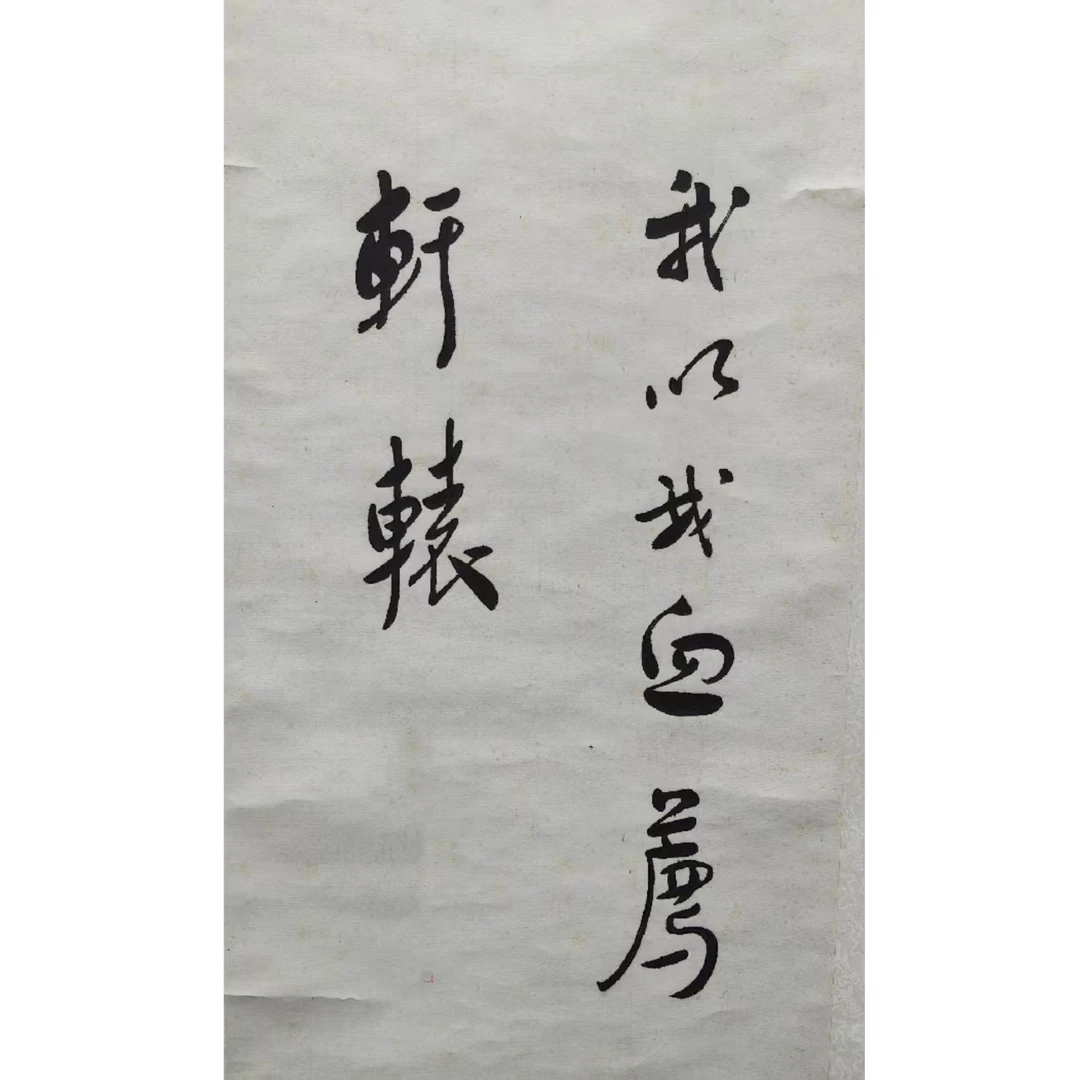 我以我血薦
軒轅